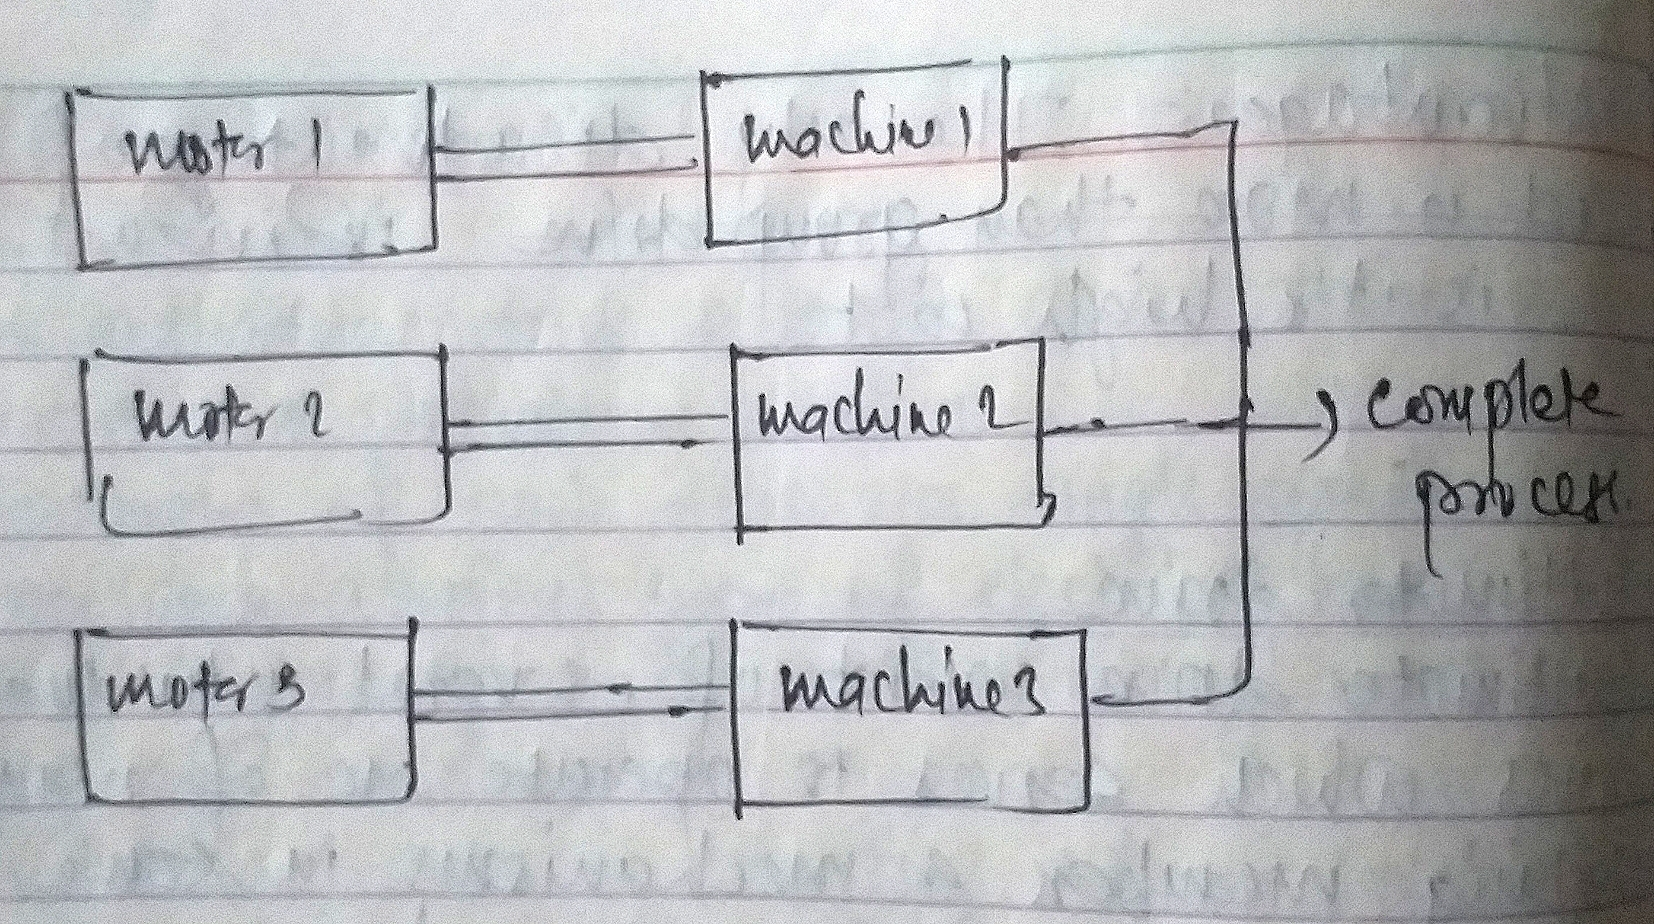 motor 1
machine 1
motor 2
machine 2
complete
process.
motor 3
machine 3